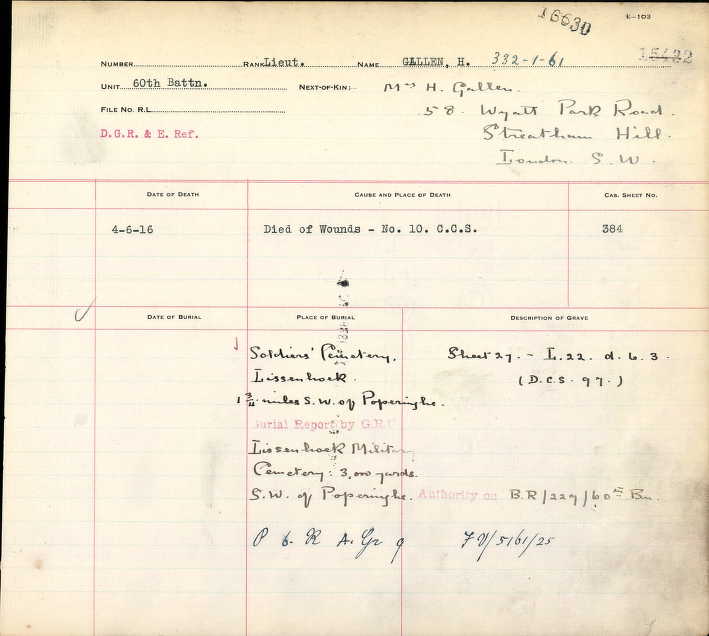 16630
E-103
NUMBER RANK Lieut. NAME GALLEN, H. 332-1-61 15422
UNIT 60th Battn. NEXT-OF-KIN: Mrs H. Gallen.
FILE NO. R.L. 58. Wyatt Park Road.
D.G.R. & E. Ref. Streatham Hill.
London S.W.
DATE OF DEATH CAUSE AND PLACE OF DEATH CAS. SHEET NO.
4-6-16 Died of Wounds - No. 10. C.C.S. 384
DATE OF BURIAL PLACE OF BURIAL DESCRIPTION OF GRAVE
Soldiers' Cemetery, Sheet 27. - L. 22. d. 6. 3.
Lissenhoek. (D.C.S. 97.)
1 3/4 miles S.W. of Poperinghe.
Burial Report by G.R.U
Lissenhoek Military
Cemetery: 3,000 yards.
S.W. of Poperinghe. Authority on B.R/229/60th Bn.
P 6. R A. Gr 9 FV/5161/25